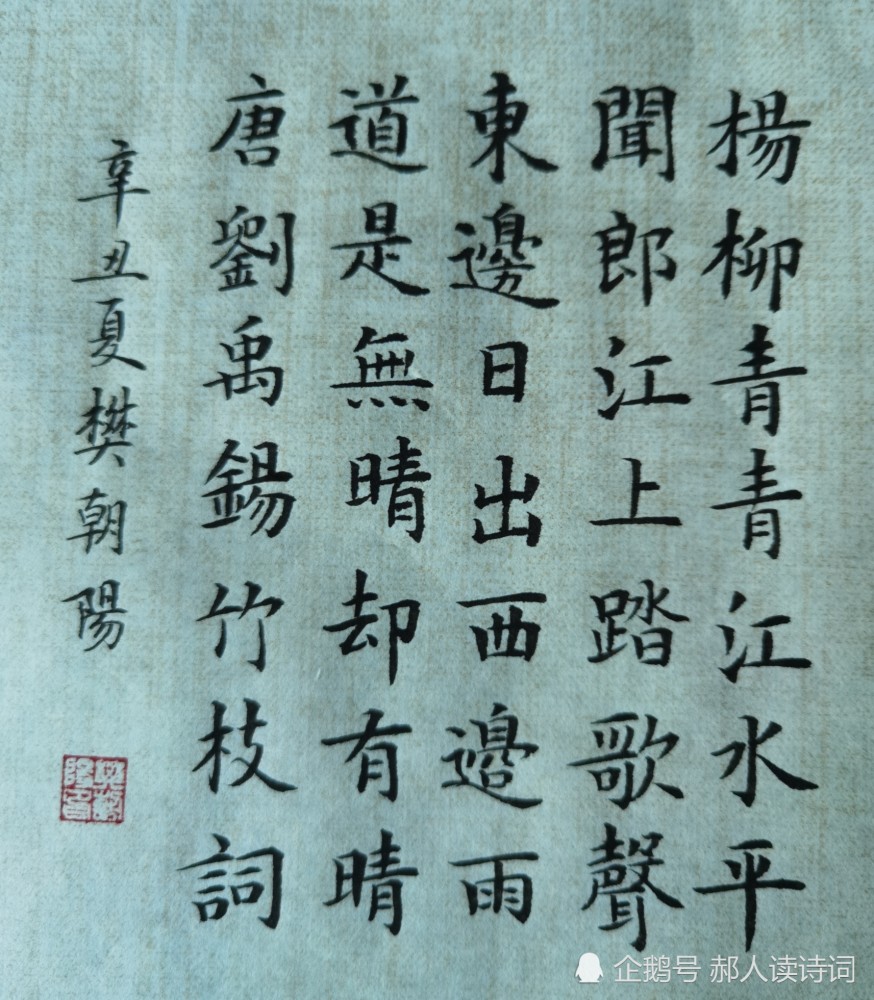 楊柳青青江水平
聞郎江上踏歌聲
東邊日出西邊雨
道是無晴却有晴
唐劉禹錫竹枝詞
辛丑夏樊朝陽
企鹅号 郝人读诗词